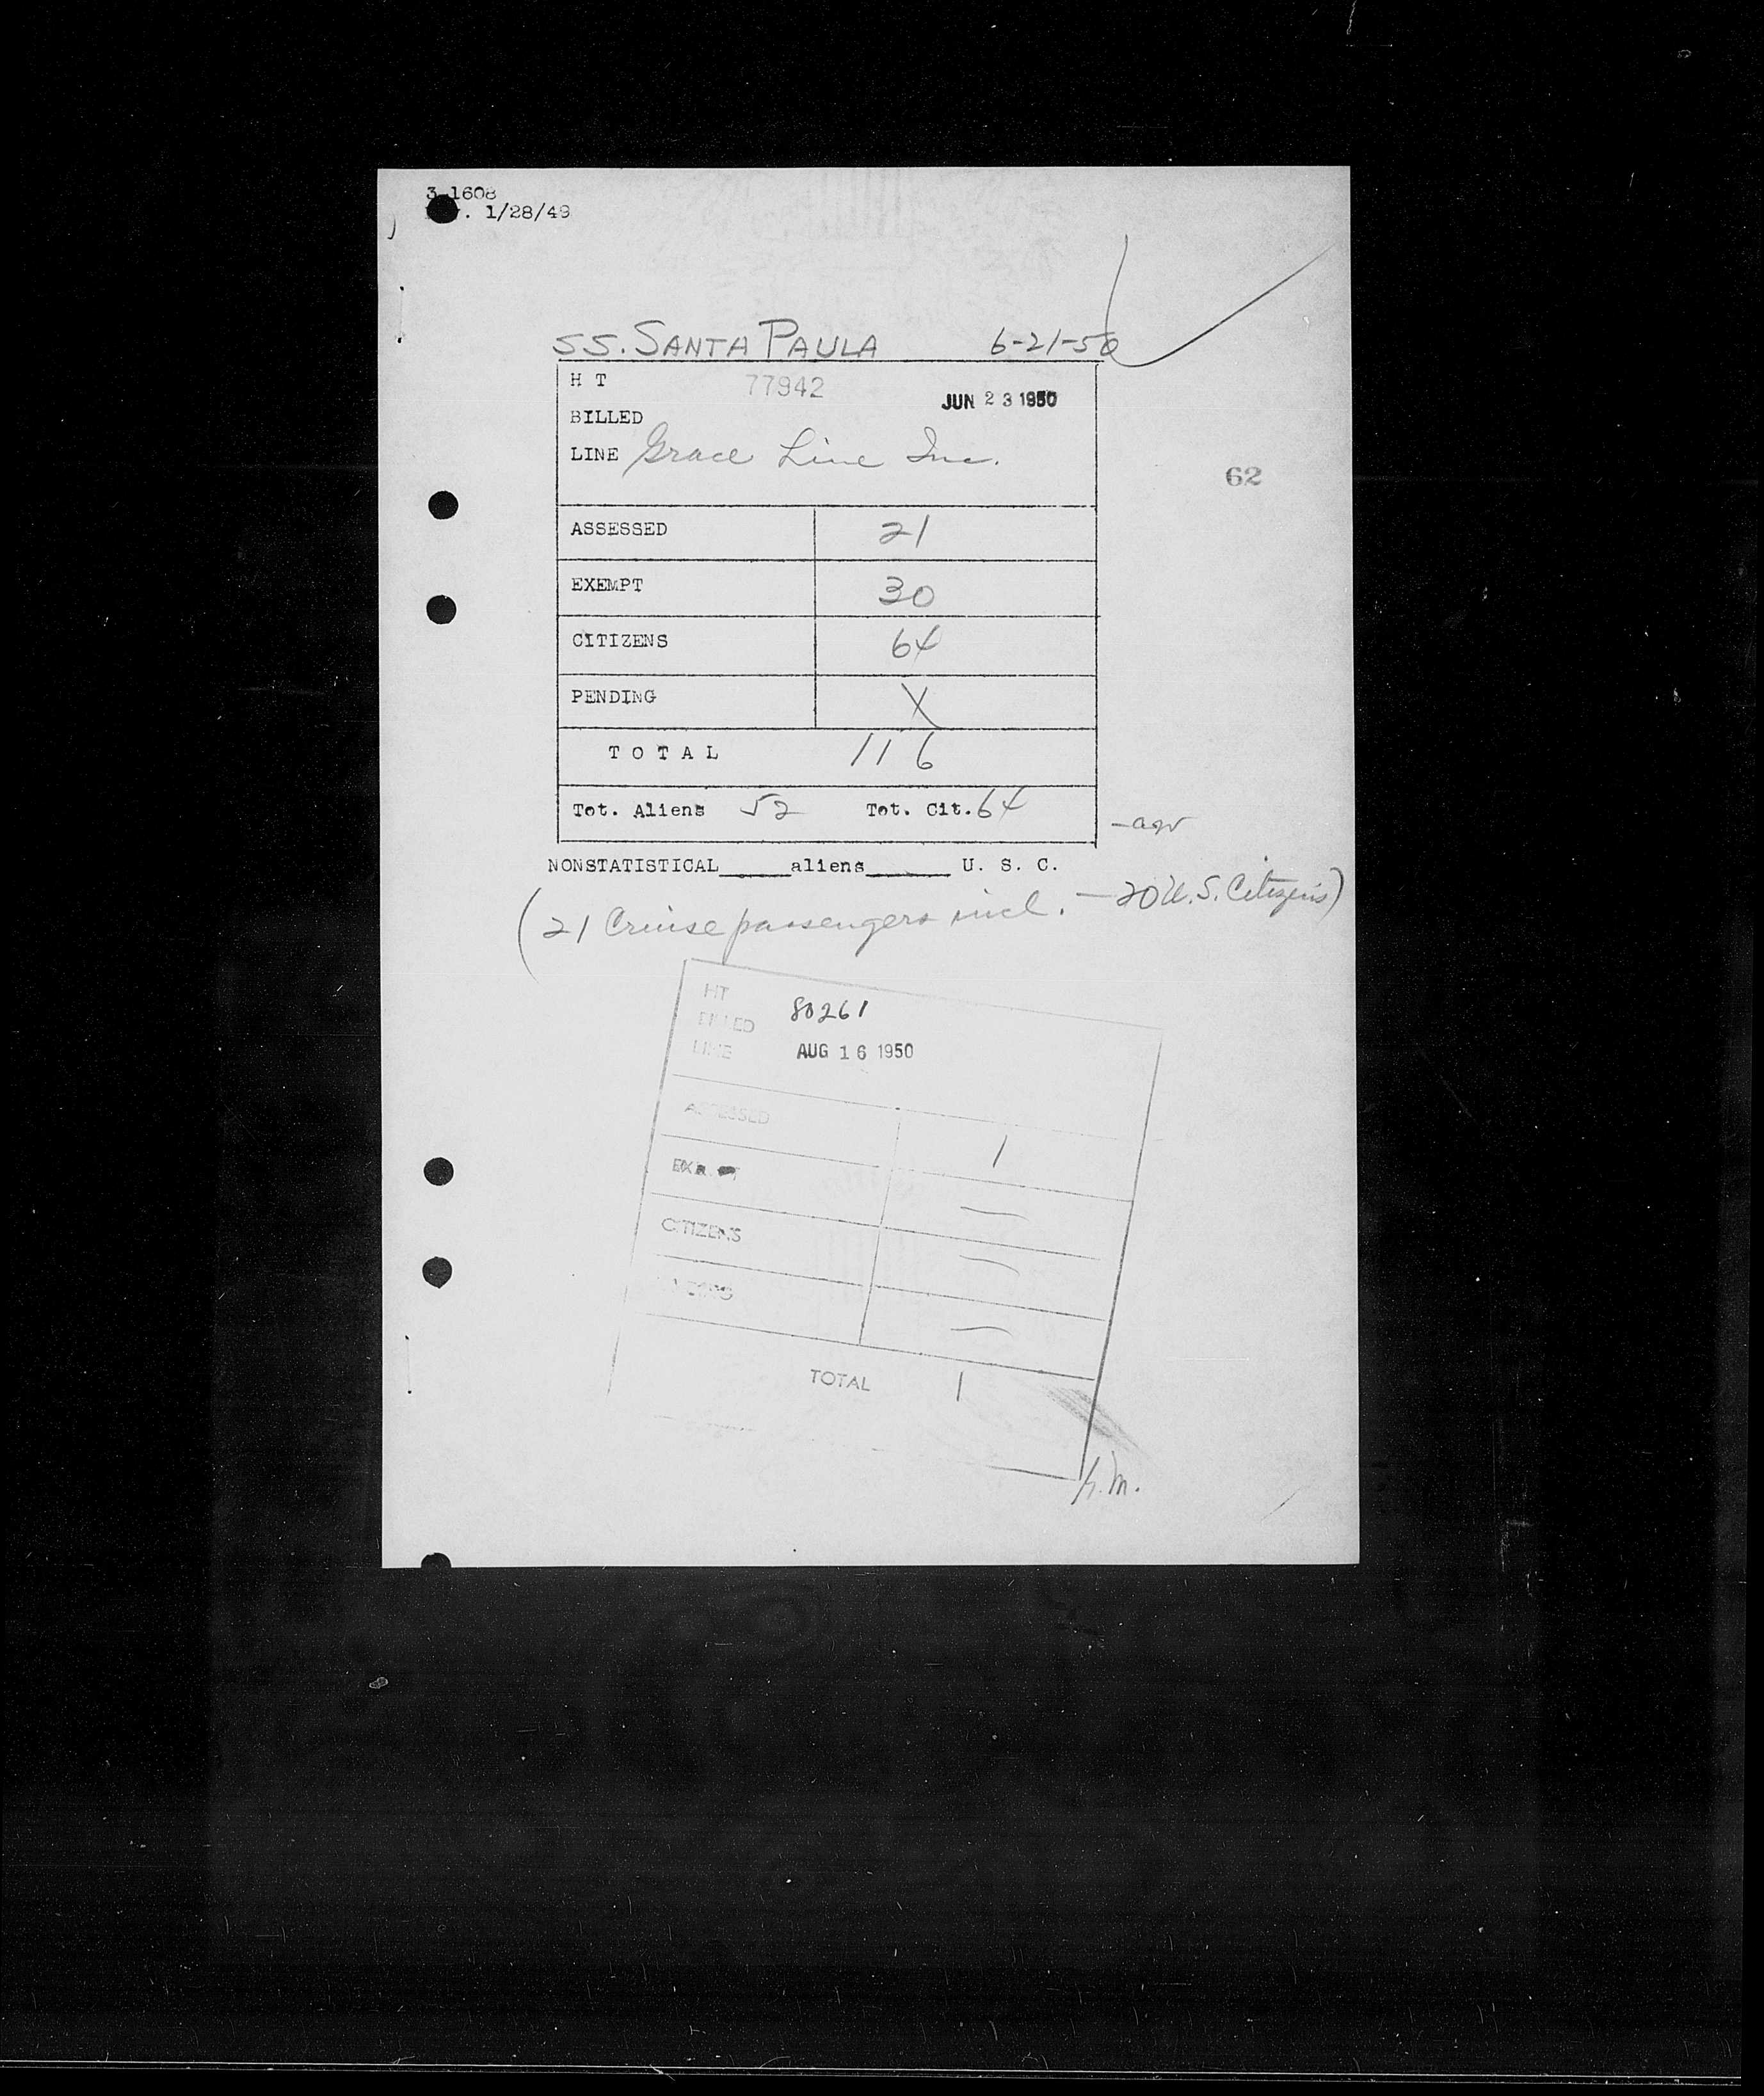 3-1608
. 1/28/49
SS. SANTA PAULA 6-21-50
H T 77942
JUN 23 1950
BILLED
LINE Grace Line Inc.
62
ASSESSED 21
EXEMPT 30
CITIZENS 64
PENDING X
TOTAL 116
Tot. Aliens 52 Tot. Cit. 64
NONSTATISTICAL_____aliens_______ U. S. C.
(21 Cruise passengers incl. — 20 U.S. Citizens)
HT 80261
BILLED
LINE AUG 16 1950
ASSESSED 1
EXEMPT —
CITIZENS —
PENDING —
TOTAL 1